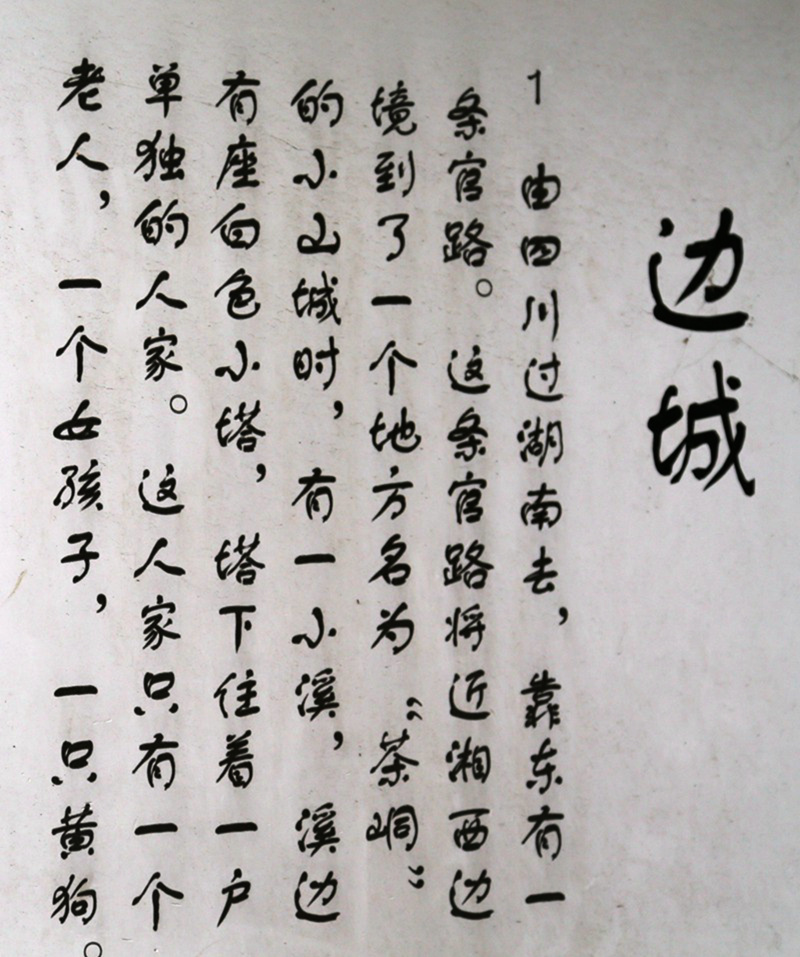 边城
1 由四川过湖南去，靠东有一
条官路。这条官路将近湘西边
境到了一个地方名为“茶峒”
的小山城时，有一小溪，溪边
有座白色小塔，塔下住着一户
单独的人家。这人家只有一个
老人，一个女孩子，一只黄狗。